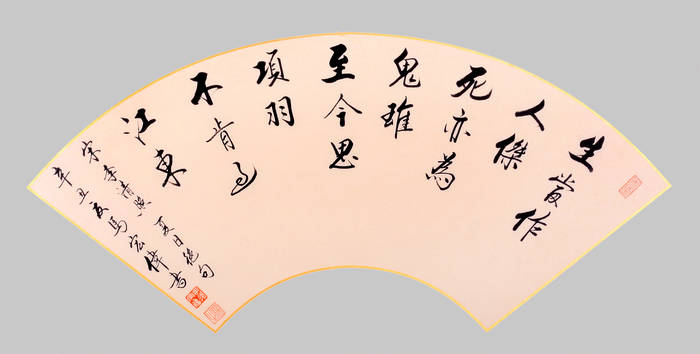 生當作
人傑
死亦為
鬼雄
至今思
項羽
不肯過
江東
宋李清照 夏日絕句
辛丑夏馬宏偉書